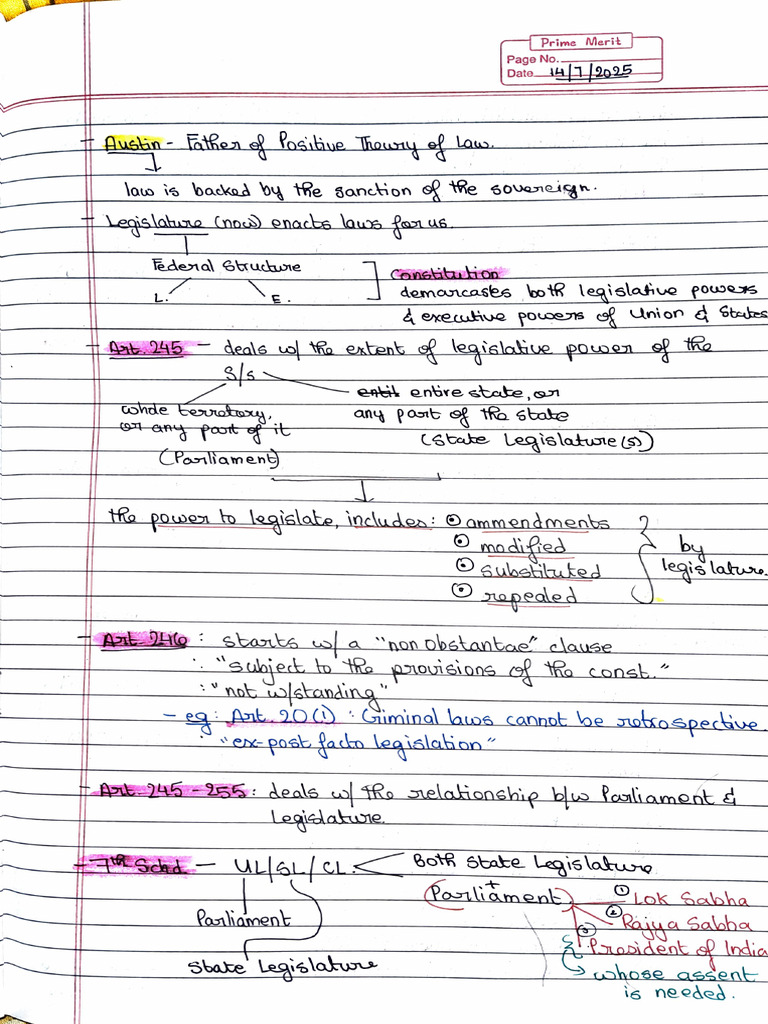 Prime Merit
Page No.
Date 14/7/2025
- Austin - Father of Positive Theory of Law.
law is backed by the sanction of the sovereign.
- Legislature (now) enacts laws for us.
Federal Structure
L. E.
Constitution
demarcastes both legislative powers
& executive powers of Union & States
- Art. 245 - deals w/ the extent of legislative power of the
S/s
whole terretory,
or any part of it
(Parliament)
entil entire state, or
any part of the state
(State Legislature(s))
the power to legislate, includes: ⊙ ammendments
⊙ modified
⊙ substituted
⊙ repealed
by
legislature.
- Art 246 : starts w/ a "non obstantae" clause
∴ "subject to the provisions of the const."
: "not w/standing"
- eg: Art. 20(1) : Criminal laws cannot be retrospective.
∴ "ex-post facto legislation"
- Art. 245 - 255 : deals w/ the relationship b/w Parliament &
Legislature.
- 7th Schd - UL/SL/CL. Both State Legislature
+
(Parliament)
Parliament
State Legislature
① Lok Sabha
② Rajya Sabha
③ President of India
whose assent
is needed.